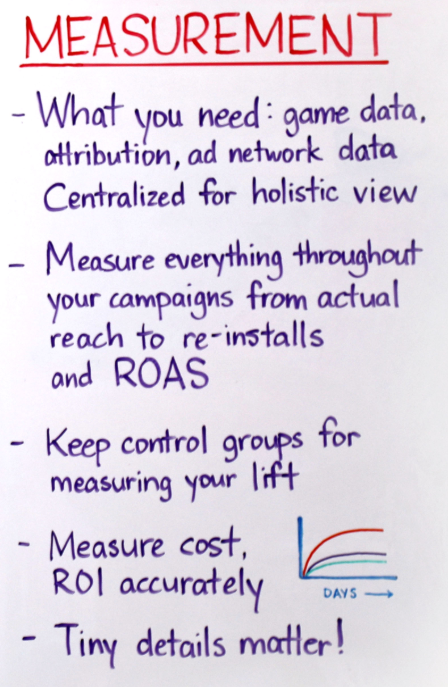 MEASUREMENT
- What you need: game data,
attribution, ad network data
Centralized for holistic view
- Measure everything throughout
your campaigns from actual
reach to re-installs
and ROAS
- Keep control groups for
measuring your lift
- Measure cost,
ROI accurately
DAYS →
- Tiny details matter!